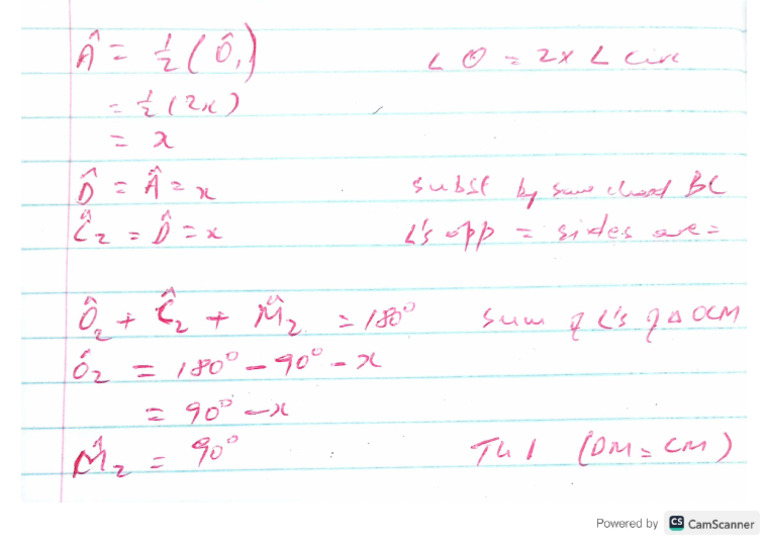 Â = ½(Ô₁) ∠O = 2x ∠ circ
= ½(2x)
= x
D̂ = Â = x subst by same chord BC
Ĉ₂ = D̂ = x ∠'s opp = sides are =
Ô₂ + Ĉ₂ + M̂₂ = 180° sum of ∠'s of Δ OCM
Ô₂ = 180° - 90° - x
= 90° - x
M̂₂ = 90° Th 1 (DM = CM)
Powered by CS CamScanner